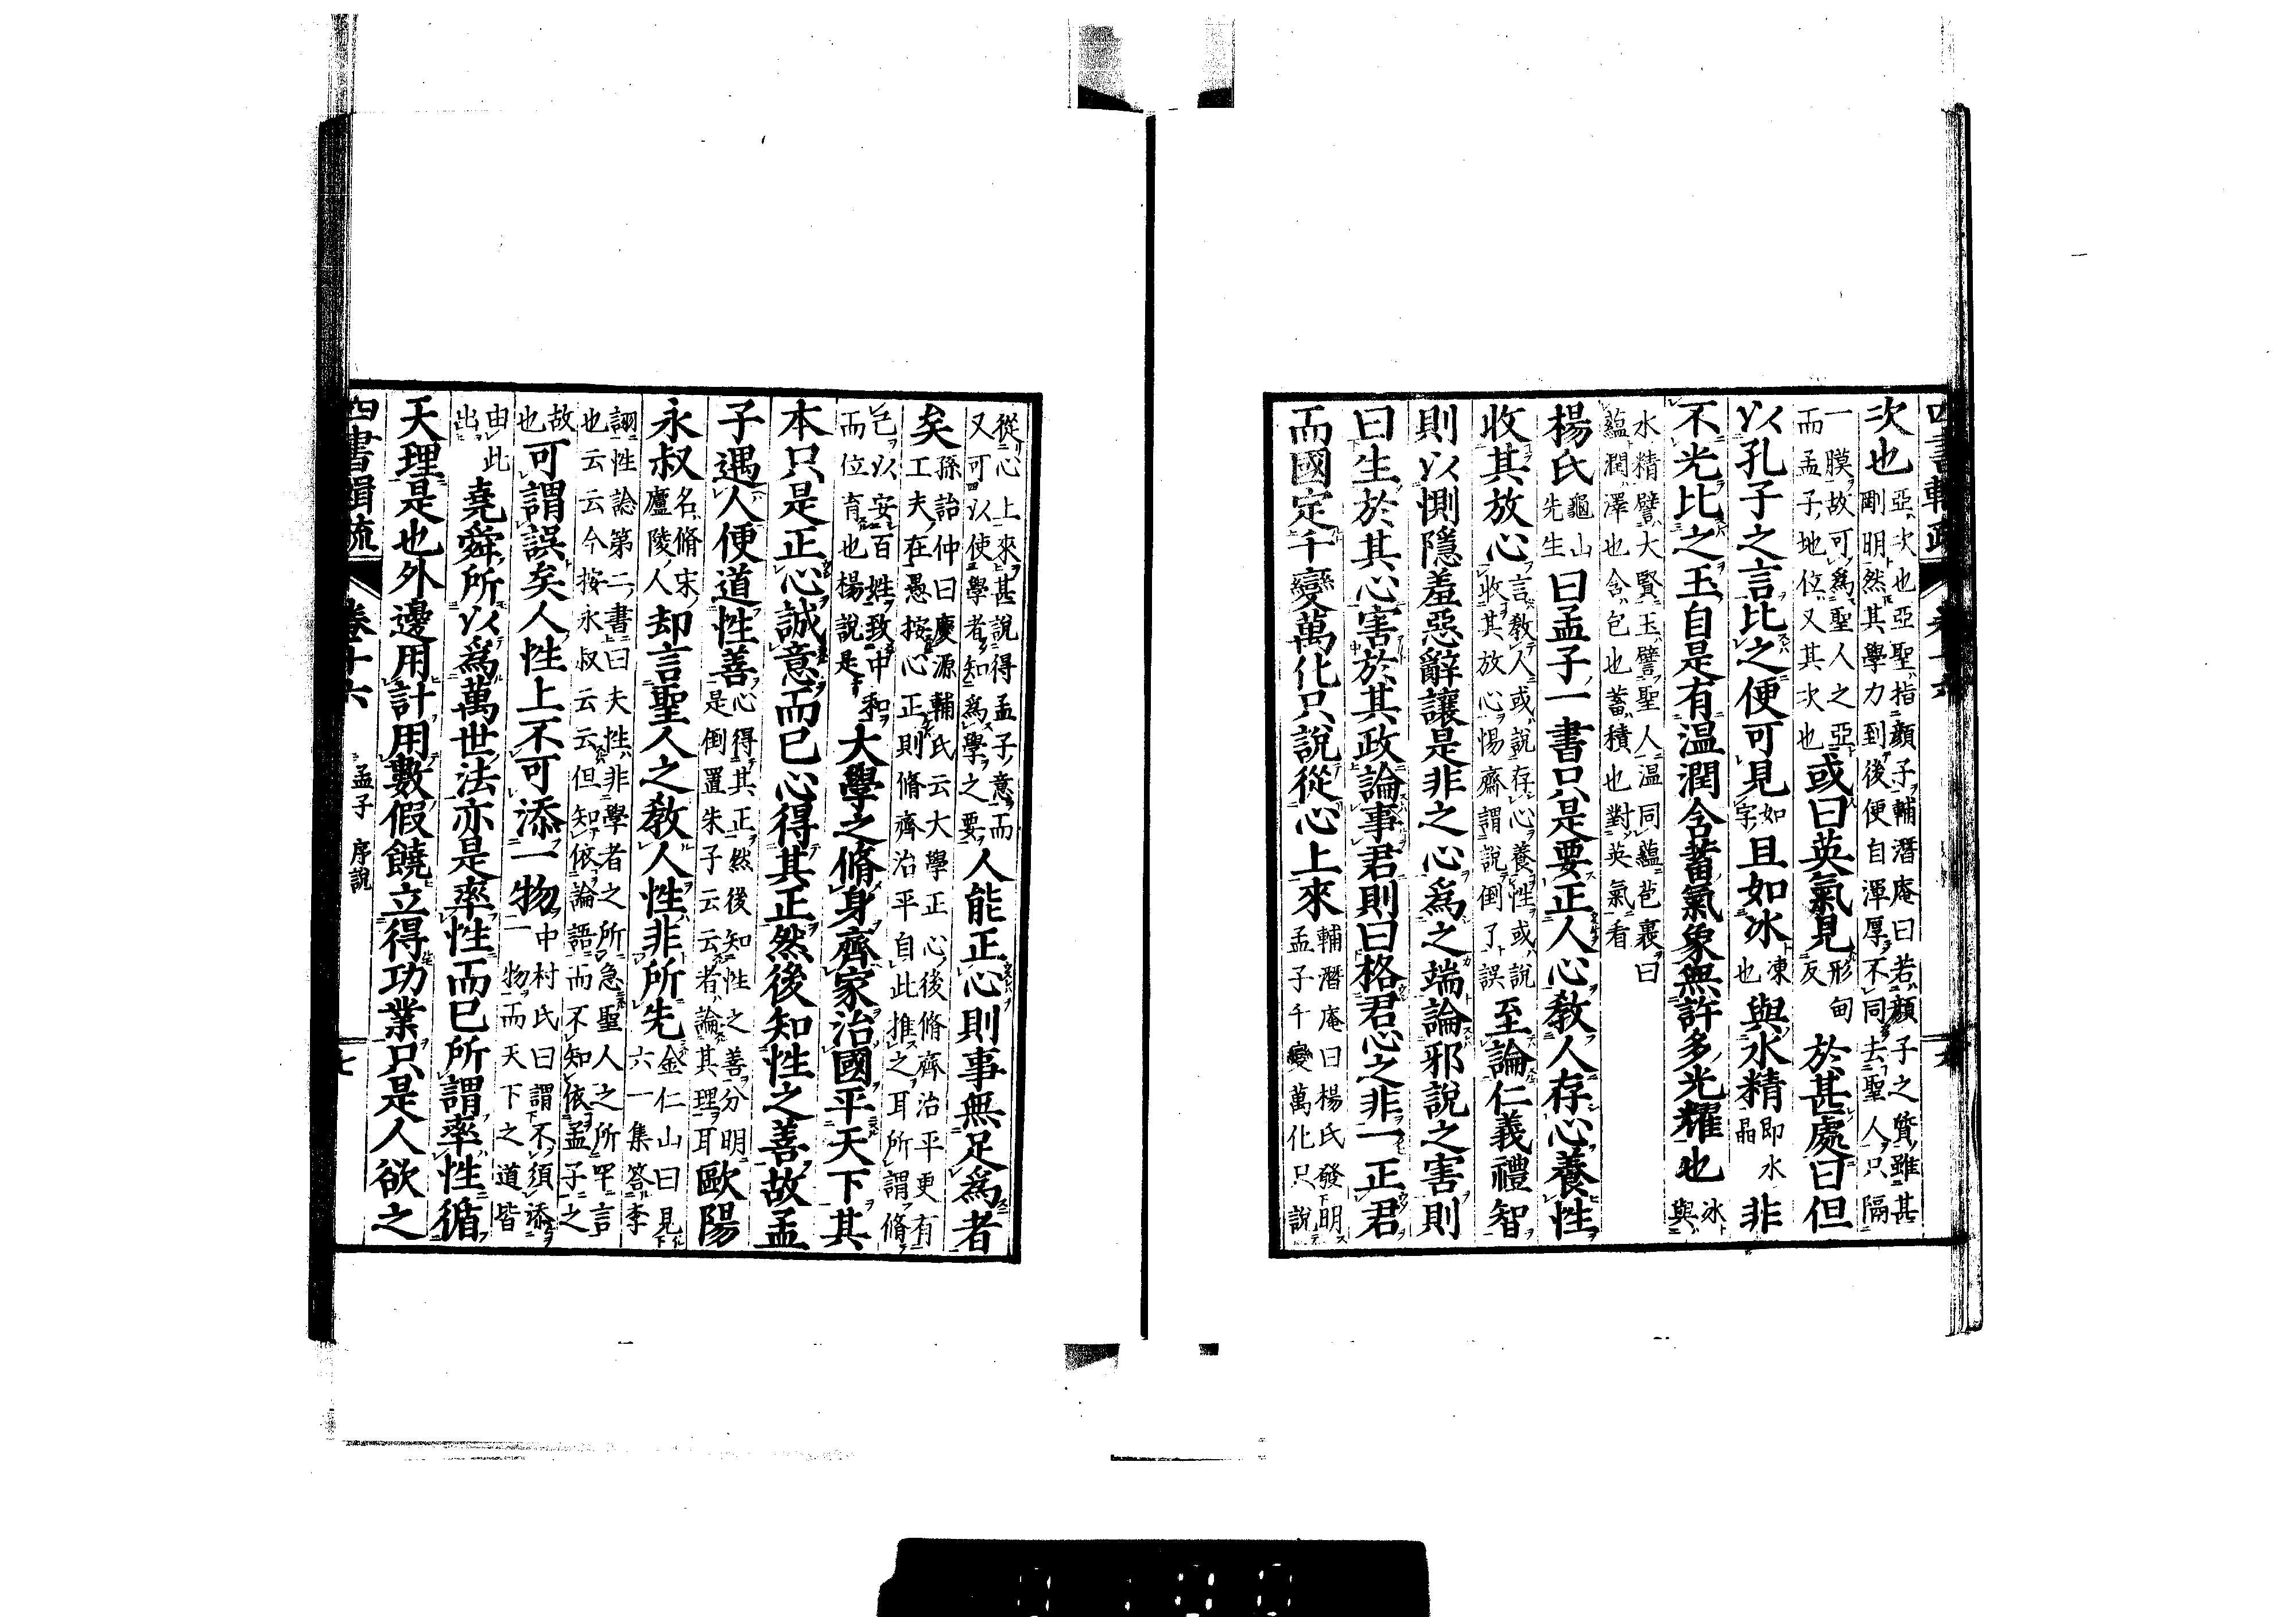 次也亞次也亞聖指顏子輔潛庵曰若顏子之質雖甚剛明然其學力到後便自渾厚不同去聖人只隔
一膜故可爲聖人之亞而孟子地位又其次也或曰英氣見形甸反於甚處曰但
以孔子之言比之便可見如字且如冰凍也與水精即水晶非
不光比之玉自是有温潤含蓄氣象無許多光耀也冰與
水精譬大賢玉譬聖人温同蘊苞裏曰蘊潤澤也含包也蓄積也對英氣看
楊氏龜山先生曰孟子一書只是要正人心教人存心養性
收其放心言教人或說存心養性或說收其放心惕齋謂說倒了誤至論仁義禮智
則以惻隱羞惡辭讓是非之心爲之端論邪說之害則
曰生於其心害於其政論事君則曰格君心之非一正君
而國定千變萬化只說從心上來輔潛庵曰楊氏發明孟子千變萬化只說
從心上來甚說得孟子意而又可以使學者知爲學之要人能正心則事無足爲者
矣孫詒仲曰慶源輔氏云大學正心後脩齊治平更有工夫在愚按心正則脩齊治平自此推之耳所謂脩
己以安百姓致中和而位育也楊說是大學之脩身齊家治國平天下其
本只是正心誠意而已心得其正然後知性之善故孟
子遇人便道性善心得其正然後知性之善分明是倒置朱子云云者論其理耳歐陽
永叔名脩宋廬陵人却言聖人之教人性非所先金仁山曰見六一集答李
詡性論第二書曰夫性非學者之所急聖人之所罕言也云云今按永叔云云但知依論語而不知依孟子之
故也可謂誤矣人性上不可添一物中村氏曰謂不須添一物而天下之道皆
由此出堯舜所以爲萬世法亦是率性而已所謂率性循
天理是也外邊用計用數假饒立得功業只是人欲之
四書輯疏 卷十六 孟子 序說 七